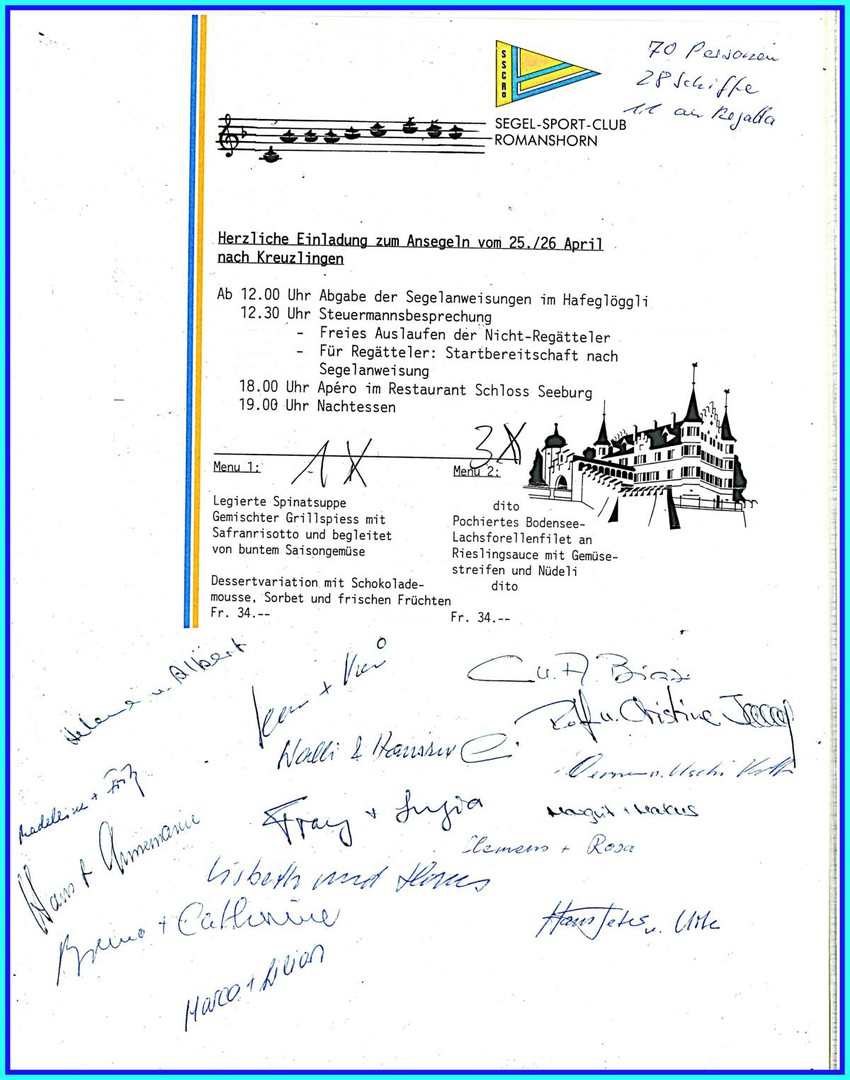 70 Personen
28 Schiffe
an Regatta
SSCRo
SEGEL-SPORT-CLUB
ROMANSHORN
Herzliche Einladung zum Ansegeln vom 25./26 April
nach Kreuzlingen
Ab 12.00 Uhr Abgabe der Segelanweisungen im Hafeglöggli
12.30 Uhr Steuermannsbesprechung
- Freies Auslaufen der Nicht-Regätteler
- Für Regätteler: Startbereitschaft nach
Segelanweisung
18.00 Uhr Apéro im Restaurant Schloss Seeburg
19.00 Uhr Nachtessen
Menu 1: 1 X
Legierte Spinatsuppe
Gemischter Grillspiess mit
Safranrisotto und begleitet
von buntem Saisongemüse
Dessertvariation mit Schokolade-
mousse, Sorbet und frischen Früchten
Fr. 34.--
Menu 2: 3X
dito
Pochiertes Bodensee-
Lachsforellenfilet an
Rieslingsauce mit Gemüse-
streifen und Nüdeli
dito
Fr. 34.--
Helene u. Albert
Rolf u. Christine
Walli & Hansruedi
u. Uschi
Madeleine + Fritz
Margrit + Markus
Clemens + Rosa
Hans & Annemarie
Lisbeth und
Bruno + Catherine
Hanspeter u.
Marco + Lilian